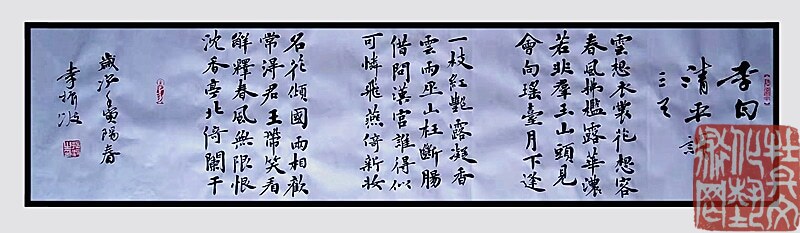 李白
清平調
三首
雲想衣裳花想容
春風拂檻露華濃
若非羣玉山頭見
會向瑤臺月下逢
一枝紅艷露凝香
雲雨巫山枉斷腸
借問漢宮誰得似
可憐飛燕倚新妝
名花傾國兩相歡
常得君王帶笑看
解釋春風無限恨
沈香亭北倚闌干
歲次壬寅陽春
李振波
牡丹文
化藝
術网